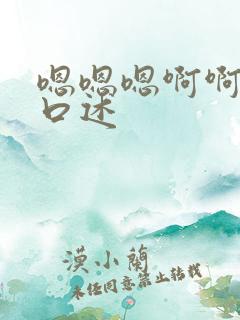 嗯嗯嗯啊啊
口述
漠小蘭
未经同意禁止转载